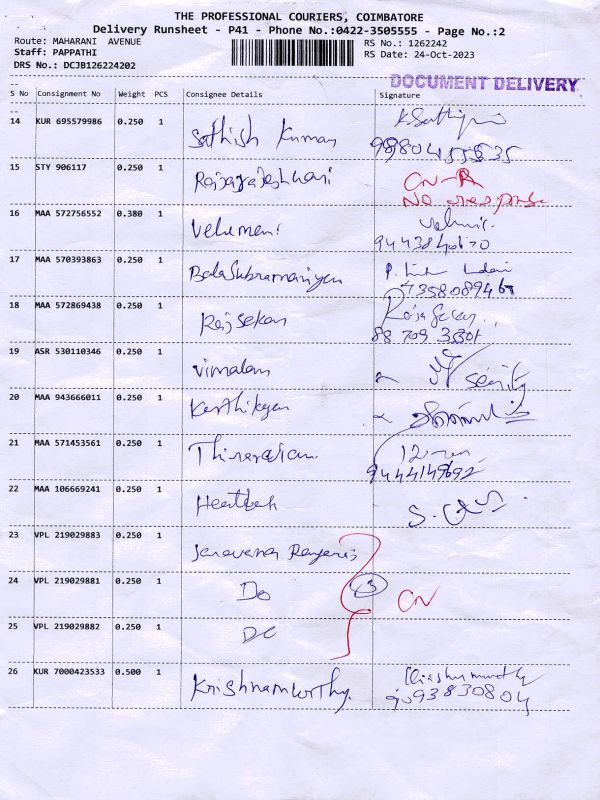 THE PROFESSIONAL COURIERS, COIMBATORE
Delivery Runsheet - P41 - Phone No.:0422-3505555 - Page No.:2
Route: MAHARANI AVENUE RS No.: 1262242
Staff: PAPPATHI RS Date: 24-Oct-2023
DRS No.: DCJB126224202
DOCUMENT DELIVERY
S No Consignment No Weight PCS Consignee Details Signature
14 KUR 695579986 0.250 1 Sathish Kumar
15 STY 906117 0.250 1 Rajarajeshwari CN-R
No response
16 MAA 572756552 0.380 1 Velumani
17 MAA 570393863 0.250 1 BalaSubramaniyan
18 MAA 572869438 0.250 1 Rajsekar
19 ASR 530110346 0.250 1 Vimalan
20 MAA 943666011 0.250 1 Karthikeyan
21 MAA 571453561 0.250 1
9444149692
22 MAA 106669241 0.250 1
23 VPL 219029883 0.250 1
24 VPL 219029881 0.250 1 Do 3 CN
25 VPL 219029882 0.250 1 Do
26 KUR 7000423533 0.500 1 Krishnamurthy
9093830804